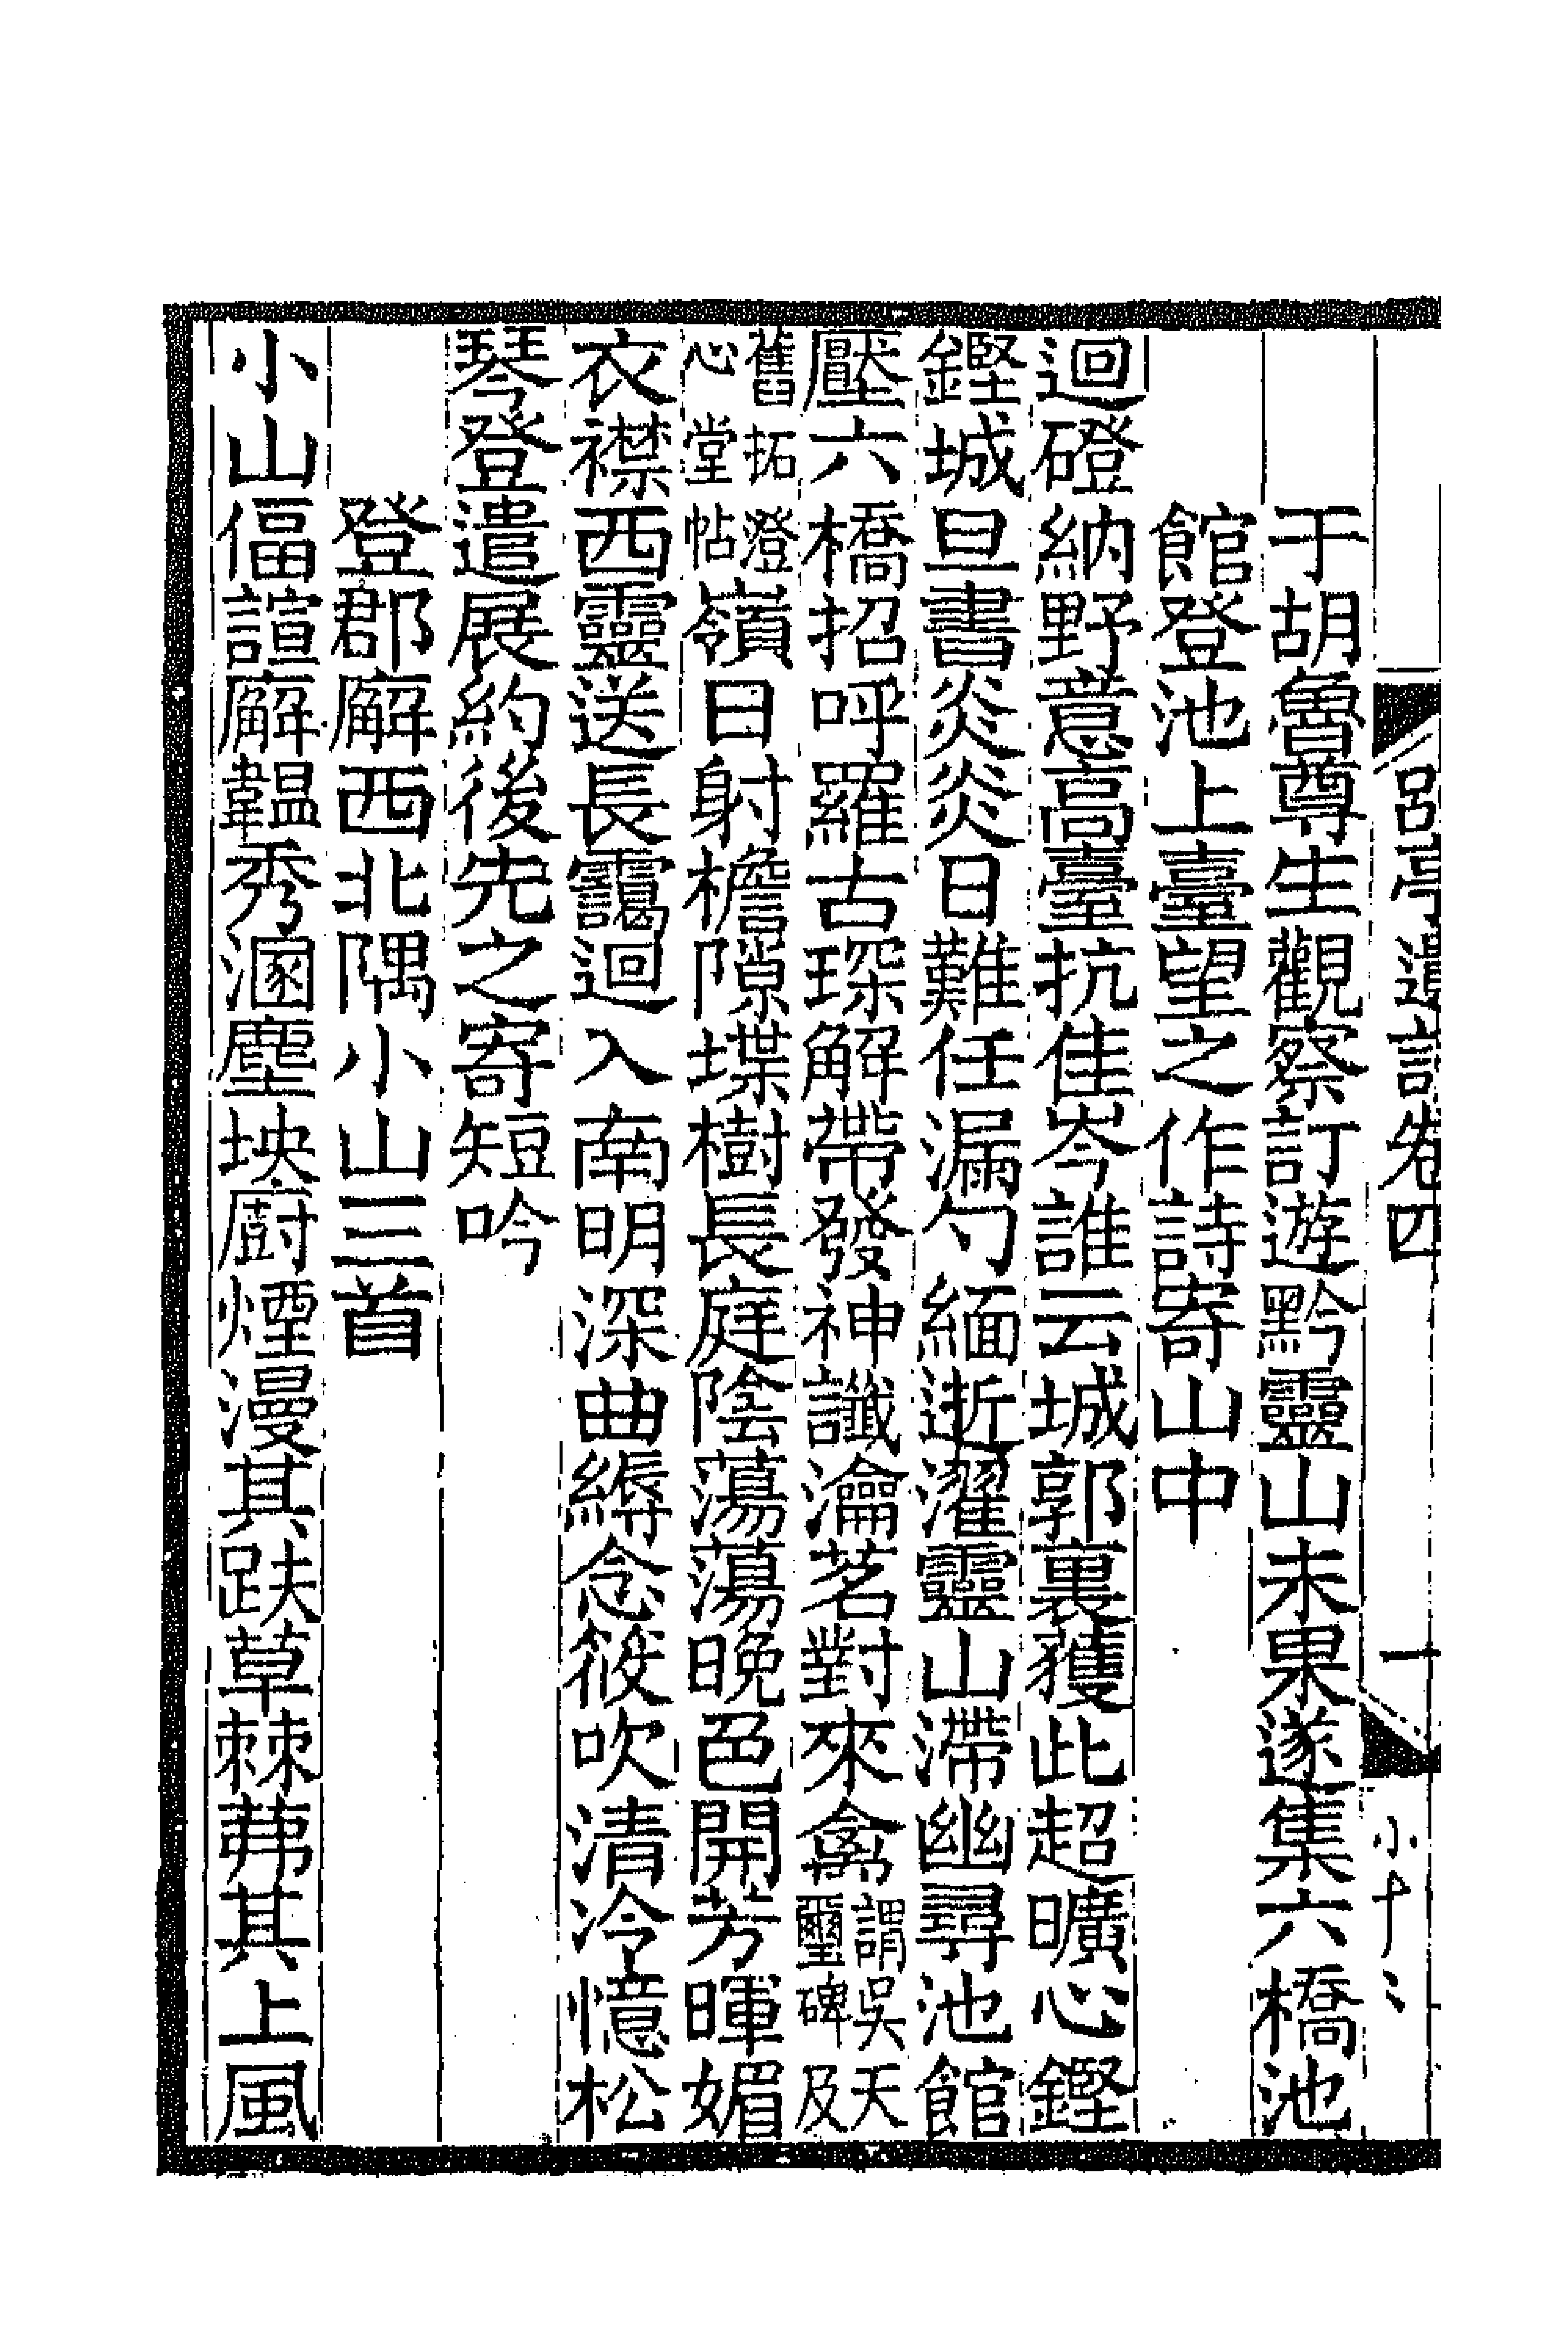 郘亭遺詩卷四
一
于胡魯尊生觀察訂遊黔靈山未果遂集六橋池
館登池上臺望之作詩寄山中
迴磴納野意高臺抗佳岑誰云城郭裏獲此超曠心鏗
鏗城旦書炎炎日難任漏勺緬逝濯靈山滯幽尋池館
壓六橋招呼羅古琛解帶發神讖瀹茗對來禽謂吳天璽碑及
舊拓澄心堂帖嶺日射檐隙堞樹長庭陰蕩蕩晚色開芳暉媚
衣襟西靈送長靄迴入南明深曲縟念筱吹清泠憶松
琴登遣展約後先之寄短吟
登郡廨西北隅小山三首
小山偪諠廨韞秀溷塵坱廚煙漫其趺草棘茀其上風